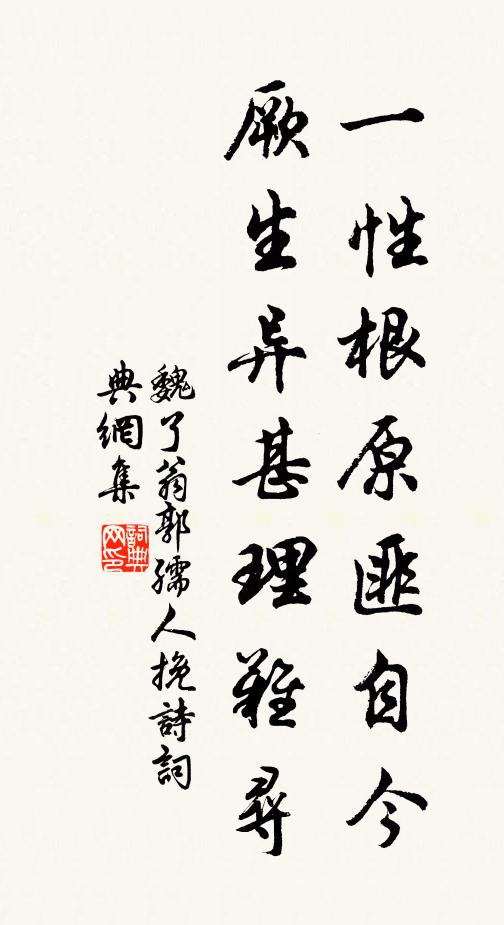 一性根原匪自今
厥生异甚理難尋
魏了翁郭孺人挽詩詞
典網集
詞典
网印